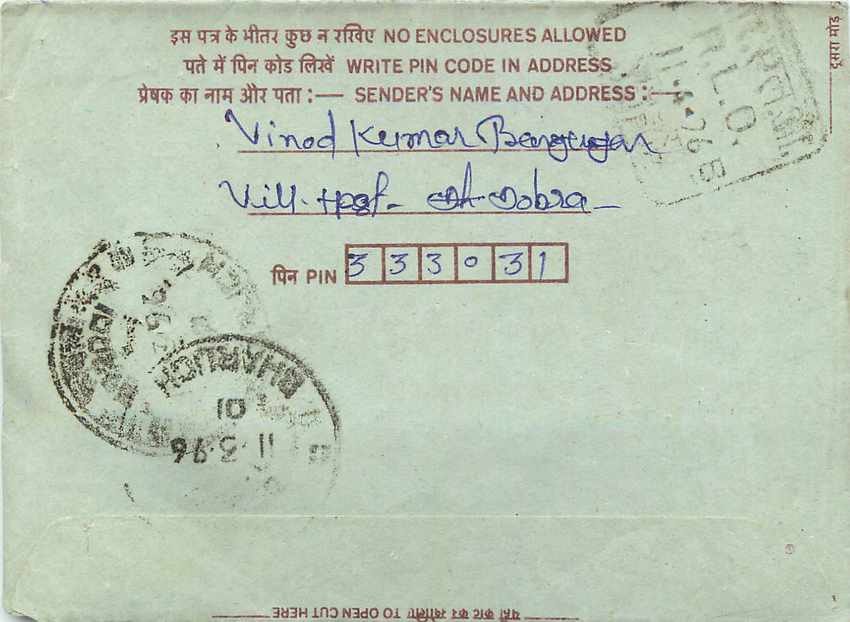 इस पत्र के भीतर कुछ न रखिए NO ENCLOSURES ALLOWED
पते में पिन कोड लिखें WRITE PIN CODE IN ADDRESS
प्रेषक का नाम और पता :— SENDER'S NAME AND ADDRESS :—
Vinod Kumar
Vill. +post-
पिन PIN 333031
दूसरा मोड़
R.L.O.
BHARUCH
01
11.3.96
यहाँ काट कर खोलिए TO OPEN CUT HERE